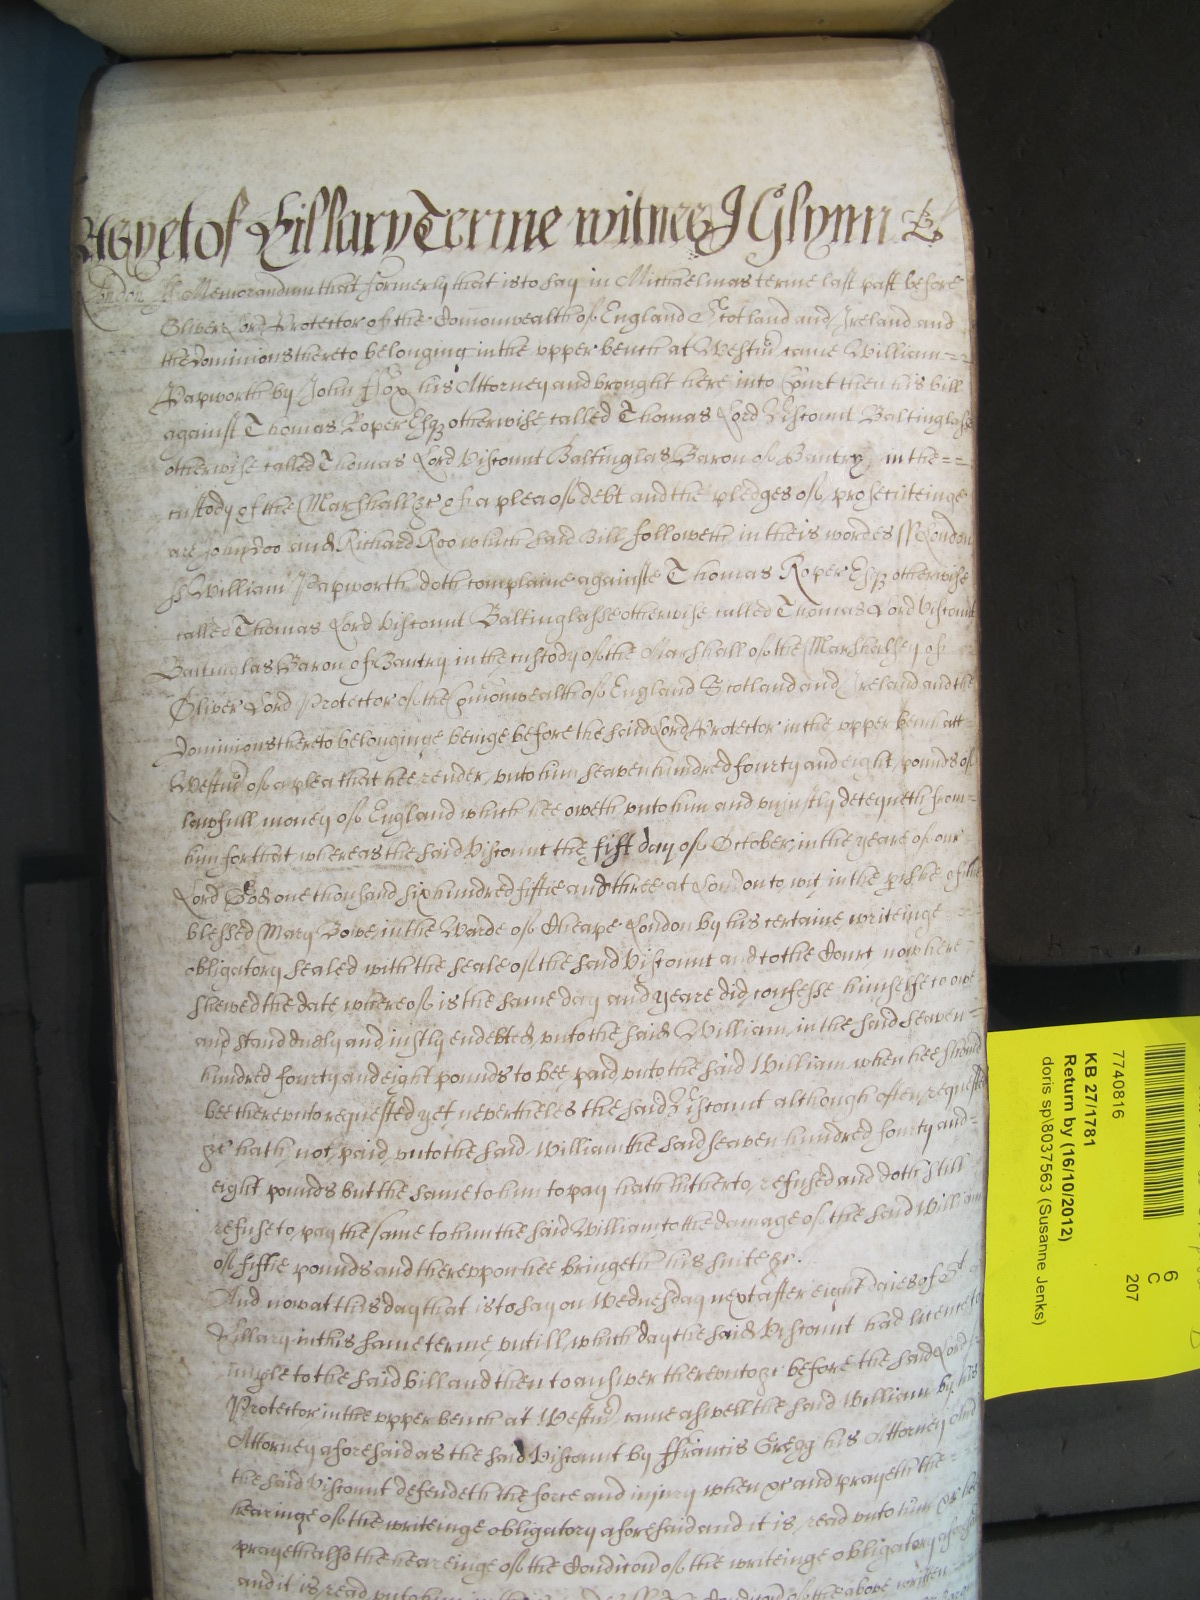 As yet of Hillary Terme witnes J Glynn
London ss Memorandum that formerly that is to say in Michaelmas terme last past before
Oliver Lord Protector of the Comonwealth of England Scotland and Ireland and
the Dominions thereto belonging in the upper bench at Westmr came William
Papworth by John Fox his Attorney and brought here into Court then his bill
against Thomas Roper Esqr otherwise called Thomas Lord Viscount Baltinglasse
otherwise called Thomas Lord Viscount Baltinglas Baron of Bantry in the
custody of the Marshall &c of a plea of debt and the pledges of prosecuteinge
are John Doo and Richard Roo which said Bill followeth in theis wordes ss London
ss William Papworth doth complaine againste Thomas Roper Esqr otherwise
called Thomas Lord Viscount Baltinglasse otherwise called Thomas Lord Viscount
Baltinglas Baron of Bantry in the custody of the Marshall of the Marshalsey of
Oliver Lord Protector of the Comonwealth of England Scotland and Ireland and the
Dominions thereto belonginge beinge before the said Lord Protector in the upper bench att
Westmr of a plea that hee render unto him seaven hundred fourty and eight pounds of
lawfull money of England which hee oweth unto him and unjustly deteyneth from
him for that whereas the said Viscount the fift day of October in the yeare of our
Lord God one thousand six hundred fiftie and three at London to wit in the pishe of the
blessed Mary Bowe in the Warde of Cheape London by his certaine writeinge
obligatory sealed with the seale of the said Viscount and to the Court now here
shewed the date whereof is the same day and yeare did confesse himselfe to owe
and stand duely and justly endebted unto the said William in the said seaven
hundred fourty and eight pounds to bee paid unto the said William when hee should
bee thereunto requested yet nevertheles the said Viscount although often requested
&c hath not paid unto the said William the said seaven hundred fourty and
eight pounds but the same to him to pay hath hitherto refused and doth still
refuse to pay the same to him the said William to the damage of the said William
of fiftie pounds and thereupon hee bringeth his suite &c.
And now at this day that is to say on Wednesday next after eight daies of St
Hillary in this same terme untill which day the said Viscount had licence to
imple to the said bill and then to answer thereunto &c before the said Lord
Protector in the upper bench at Westmr came aswell the said William by his
Attorney aforesaid as the said Viscount by Francis Gregg his Attorney And
the said Viscount defendeth the force and injury when &c and prayeth the
hearinge of the writeinge obligatory aforesaid and it is read unto him &c hee
prayeth also the heareinge of the Condicon of the writeinge obligatory aforesaid
and it is read unto him Condicon of the above written
7740816
KB 27/1781
Return by (16/10/2012)
doris sp\8037563 (Susanne Jenks)
6
C
207